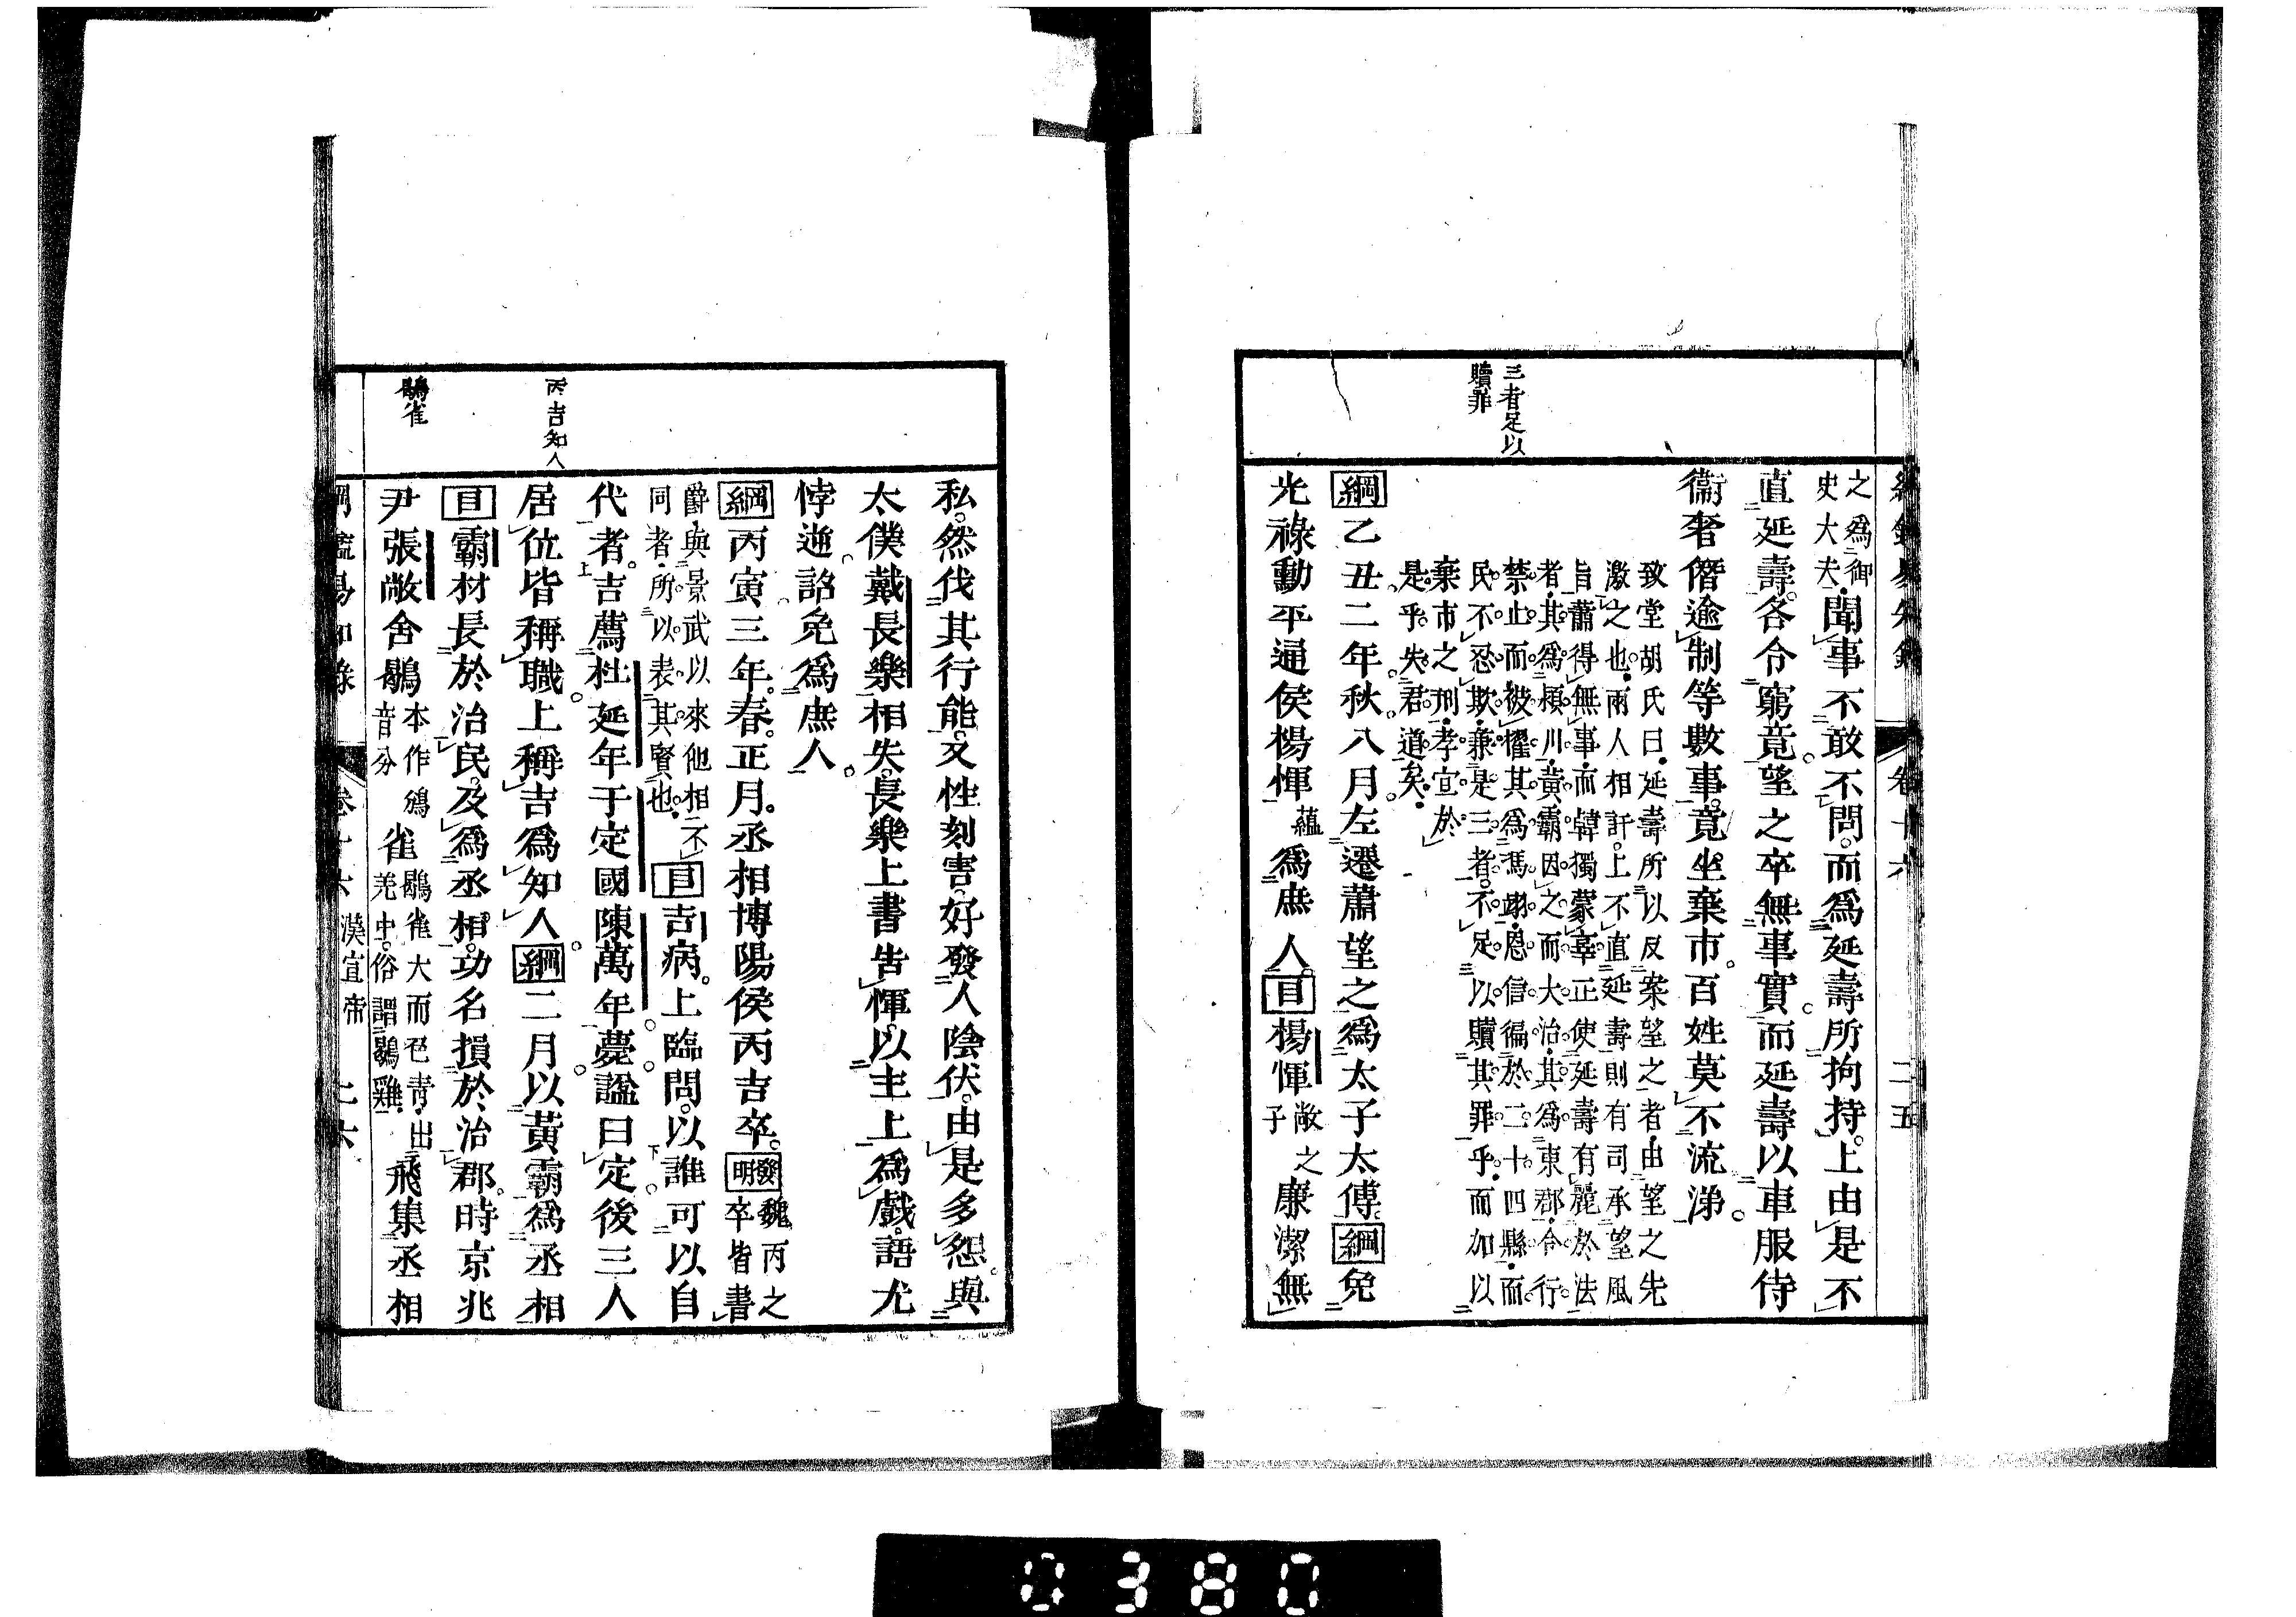 綱鑑易知錄 卷十六 二五
三者足以
贖罪
之爲御
史大夫聞事不敢不問而爲延壽所拘持上由是不
直延壽各令窮竟望之卒無事實而延壽以車服侍
衞奢僭逾制等數事竟坐棄市百姓莫不流涕
致堂胡氏曰延壽所以反案望之者由望之先
激之也兩人相訐上不直延壽則有司承望風
旨蕭得無事而韓獨蒙辜正使延壽有麗於法
者其爲潁川黃霸因之而大治其爲東郡令行
禁止而被擢其爲馮翊恩信徧於二十四縣而
民不忍欺兼是三者不足以贖其罪乎而加以
棄市之刑孝宣於
是乎失君道矣
綱乙丑二年秋八月左遷蕭望之爲太子太傅綱免
光祿勳平通侯楊惲蘊爲庶人目楊惲敞之子廉潔無
私然伐其行能又性刻害好發人陰伏由是多怨與
太僕戴長樂相失長樂上書告惲以主上爲戲語尤
悖逆詔免爲庶人
綱丙寅三年春正月丞相博陽侯丙吉卒發明魏丙之卒皆書
爵與景武以來他相不
同者所以表其賢也目吉病上臨問以誰可以自
代者吉薦杜延年于定國陳萬年薨諡曰定後三人
居位皆稱職上稱吉爲知人綱二月以黃霸爲丞相
目霸材長於治民及爲丞相功名損於治郡時京兆
尹張敞舍鶡本作鳻音分雀鶡雀大而色青出羌中俗謂鶡雞飛集丞相
丙吉知人
鶡雀
綱鑑易知錄 卷十六 漢宣帝 二六